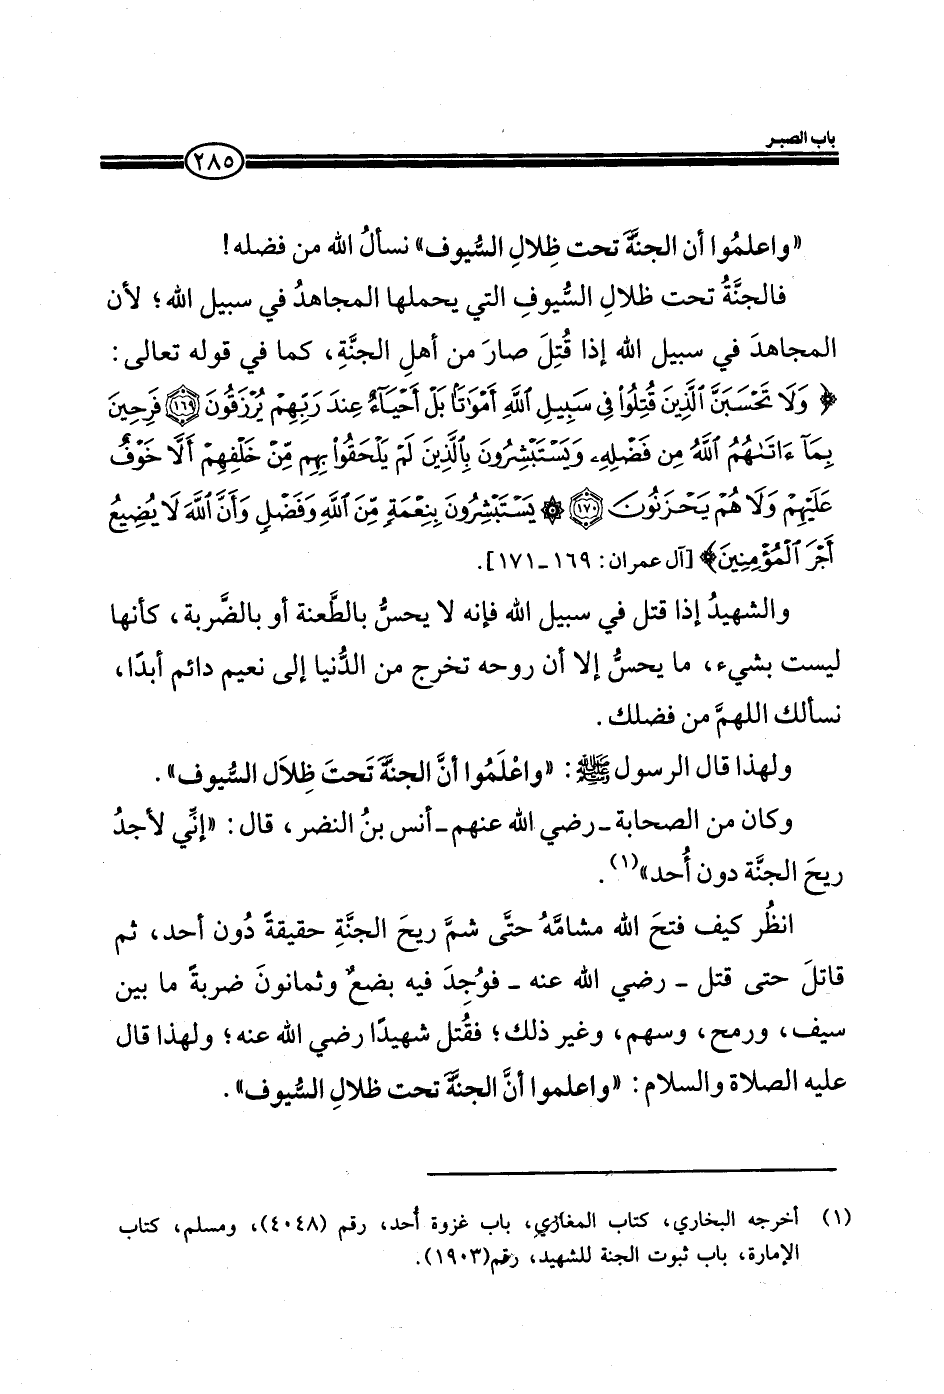 باب الصبر
٢٨٥
«واعلمُوا أن الجنَّةَ تحت ظِلالِ السُّيوف» نسألُ الله من فضله!
فالجنَّةُ تحت ظلالِ السُّيوفِ التي يحملها المجاهدُ في سبيل الله؛ لأن
المجاهدَ في سبيل الله إذا قُتِلَ صارَ من أهلِ الجنَّةِ، كما في قوله تعالى:
﴿وَلَا تَحْسَبَنَّ الَّذِينَ قُتِلُوا۟ فِى سَبِيلِ ٱللَّهِ أَمْوَٰتًۢا بَلْ أَحْيَآءٌ عِندَ رَبِّهِمْ يُرْزَقُونَ ١٦٩ فَرِحِينَ
بِمَآ ءَاتَىٰهُمُ ٱللَّهُ مِن فَضْلِهِۦ وَيَسْتَبْشِرُونَ بِٱلَّذِينَ لَمْ يَلْحَقُوا۟ بِهِم مِّنْ خَلْفِهِمْ أَلَّا خَوْفٌ
عَلَيْهِمْ وَلَا هُمْ يَحْزَنُونَ ١٧٠ ۞ يَسْتَبْشِرُونَ بِنِعْمَةٍ مِّنَ ٱللَّهِ وَفَضْلٍ وَأَنَّ ٱللَّهَ لَا يُضِيعُ
أَجْرَ ٱلْمُؤْمِنِينَ﴾ [آل عمران: ١٦٩ـ١٧١].
والشهيدُ إذا قتل في سبيل الله فإنه لا يحسُّ بالطَّعنة أو بالضَّربة، كأنها
ليست بشيء، ما يحسُّ إلا أن روحه تخرج من الدُّنيا إلى نعيم دائم أبدًا،
نسألك اللهمَّ من فضلك.
ولهذا قال الرسول ﷺ: «واعْلَمُوا أنَّ الجنةَ تَحتَ ظِلاَل السُّيوف».
وكان من الصحابة ـ رضي الله عنهم ـ أنس بنُ النضر، قال: «إنِّي لأجدُ
ريحَ الجنَّة دون أُحد»(١).
انظُر كيف فتحَ الله مشامَّهُ حتَّى شمَّ ريحَ الجنَّةِ حقيقةً دُون أحد، ثم
قاتلَ حتى قتل ـ رضي الله عنه ـ فوُجِدَ فيه بضعٌ وثمانونَ ضربةً ما بين
سيف، ورمح، وسهم، وغير ذلك؛ فقُتل شهيدًا رضي الله عنه؛ ولهذا قال
عليه الصلاة والسلام: «واعلموا أنَّ الجنَّةَ تحت ظلالِ السُّيوف».
(١) أخرجه البخاري، كتاب المغازي، باب غزوة أُحد، رقم (٤٠٤٨)، ومسلم، كتاب
الإمارة، باب ثبوت الجنة للشهيد، رقم(١٩٠٣).